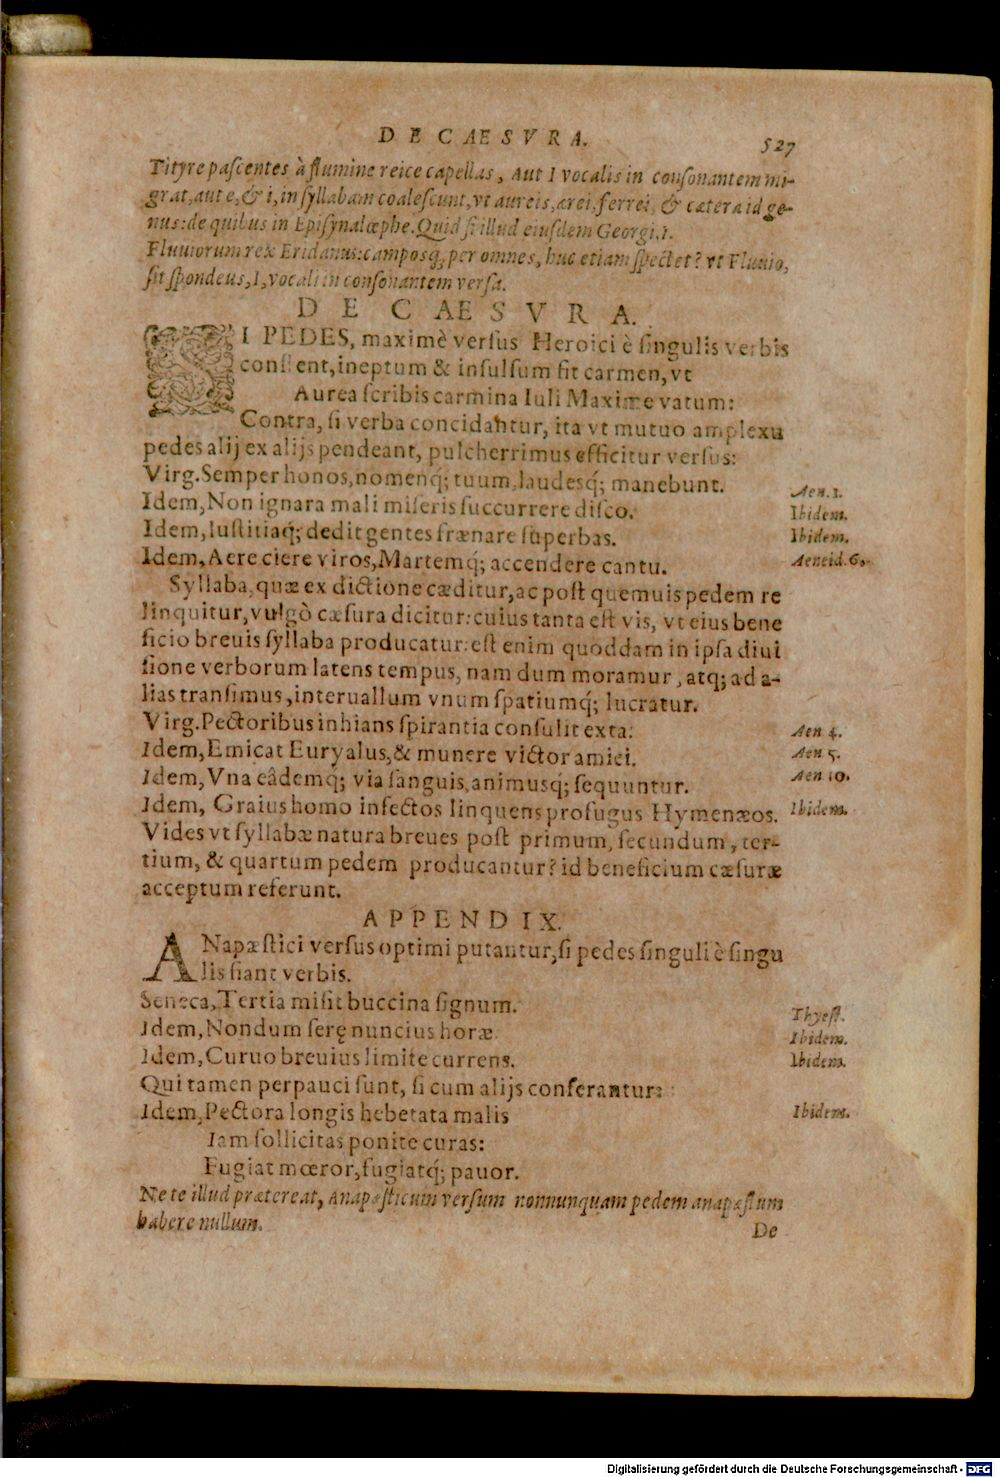 DE CAESVRA. 527
Tityre pascentes à flumine reice capellas, Aut I vocalis in consonantem mi-
grat, aut e, & i, in syllabam coalescunt, vt aureis, ærei, ferrei, & cætera id ge-
nus: de quibus in Episynalœphe. Quid si illud eiusdem Georgi. 1.
Fluuiorum rex Eridanus: camposq́; per omnes, huc etiam spectet? vt Fluuio,
sit spondeus, I, vocali in consonantem versa.
DE CAESVRA.
SI PEDES, maximè versus Heroici è singulis verbis
constent, ineptum & insulsum fit carmen, vt
Aurea scribis carmina Iuli Maxime vatum:
Contra, si verba concidantur, ita vt mutuo amplexu
pedes alij ex alijs pendeant, pulcherrimus efficitur versus:
Virg. Semper honos, nomenq́; tuum, laudesq́; manebunt. Aen. 1.
Idem, Non ignara mali miseris succurrere disco. Ibidem.
Idem, Iustitiaq́; dedit gentes frænare superbas. Ibidem.
Idem, Aere ciere viros, Martemq́; accendere cantu. Aeneid. 6.
Syllaba, quæ ex dictione cæditur, ac post quemuis pedem re
linquitur, vulgò cæsura dicitur: cuius tanta est vis, vt eius bene
ficio breuis syllaba producatur: est enim quoddam in ipsa diui
sione verborum latens tempus, nam dum moramur, atq; ad a-
lias transimus, interuallum vnum spatiumq́; lucratur.
Virg. Pectoribus inhians spirantia consulit exta: Aen 4.
Idem, Emicat Euryalus, & munere victor amici. Aen 5.
Idem, Vna eâdemq́; via sanguis, animusq́; sequuntur. Aen 10.
Idem, Graius homo infectos linquens profugus Hymenæos. Ibidem.
Vides vt syllabæ natura breues post primum, secundum, ter-
tium, & quartum pedem producantur? id beneficium cæsuræ
acceptum referunt.
APPENDIX.
ANapæstici versus optimi putantur, si pedes singuli è singu
lis fiant verbis.
Seneca, Tertia misit buccina signum. Thyest.
Idem, Nondum seręnuncius horæ Ibidem.
Idem, Curuo breuius limite currens. Ibidem.
Qui tamen perpauci sunt, si cum alijs conferantur:
Idem, Pectora longis hebetata malis Ibidem.
Iam sollicitas ponite curas:
Fugiat mœror, fugiatq́; pauor.
Ne te illud prætereat, Anapæsticum versum nonnunquam pedem anapæstum
habere nullum.
De
Digitalisierung gefördert durch die Deutsche Forschungsgemeinschaft - DFG